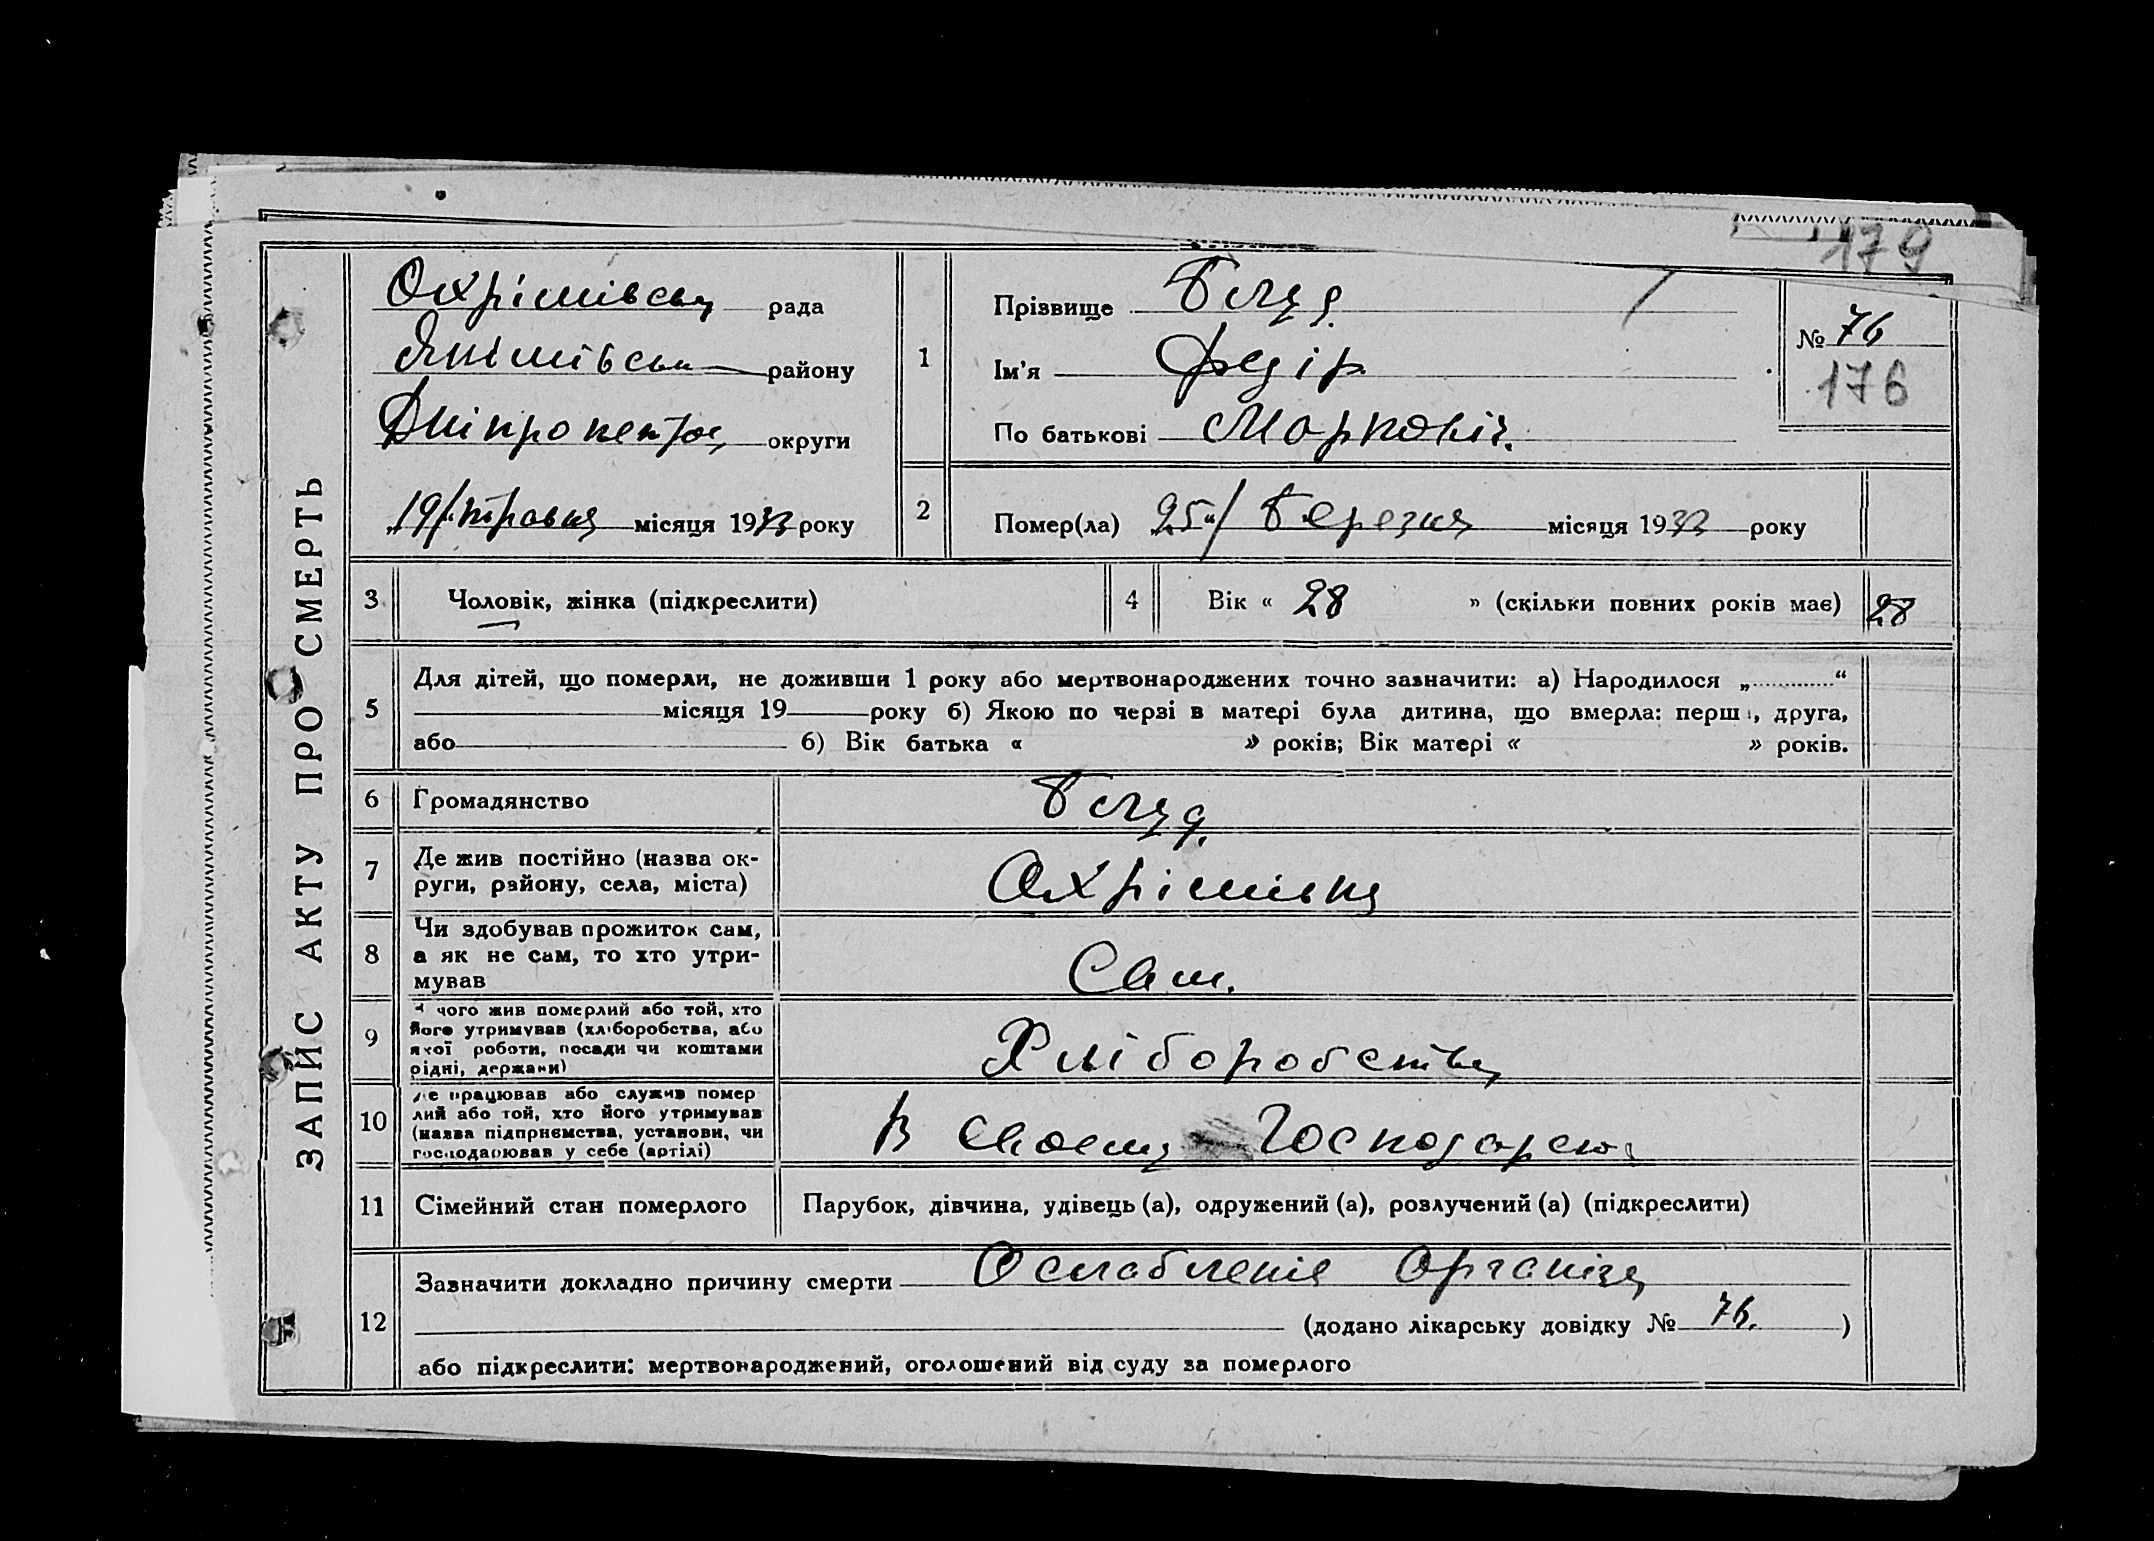 179
ЗАПИС АКТУ ПРО СМЕРТЬ
Охрімівська рада
Якимівськ району
Дніпропетров округи
„19/травня місяця 1933 року
1
Прізвище
Ім'я Федір
По батькові Маркович.
№ 76
176
2
Помер(ла) 25/ березня місяця 1933 року
3 Чоловік, жінка (підкреслити)
4 Вік « 28 » (скільки повних років має) 28
5 Для дітей, що померли, не доживши 1 року або мертвонароджених точно зазначити: а) Народилося „ “
місяця 19 року б) Якою по черзі в матері була дитина, що вмерла: перша, друга,
або б) Вік батька « » років; Вік матері « » років.
6 Громадянство
7 Де жив постійно (назва ок-
руги, району, села, міста)
Охрімівка
8 Чи здобував прожиток сам,
а як не сам, то хто утри-
мував
Сам.
9 З чого жив померлий або той, хто
його утримував (хліборобства, або
якої роботи, посади чи коштами
рідні, держави)
Хліборобства
10 Де працював або служив помер
лий або той, хто його утримував
(назва підприємства, установи, чи
господарював у себе (артілі)
В своему Господарстві
11 Сімейний стан померлого
Парубок, дівчина, удівець (а), одружений (а), розлучений (а) (підкреслити)
12 Зазначити докладно причину смерти Ослабленія Організа
(додано лікарську довідку № 76. )
або підкреслити: мертвонароджений, оголошений від суду за померлого